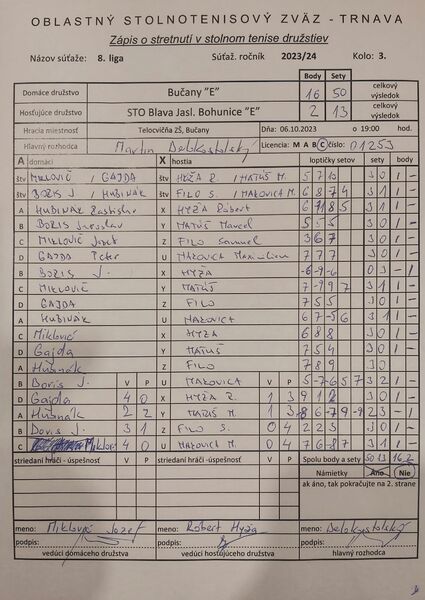 OBLASTNÝ STOLNOTENISOVÝ ZVÄZ - TRNAVA
Zápis o stretnutí v stolnom tenise družstiev
Názov súťaže: 8. liga Súťaž. ročník 2023/24 Kolo: 3.
Body Sety
Domáce družstvo Bučany "E" 16 50 celkový výsledok
Hosťujúce družstvo STO Blava Jasl. Bohunice "E" 2 13 celkový výsledok
Hracia miestnosť Telocvičňa ZŠ, Bučany Dňa: 06.10.2023 o 19:00 hod.
Hlavný rozhodca Martin Licencia: M A B C číslo: 01253
A domáci X hostia loptičky setov sety body
štv MIKLOVIČ / GAJDA štv HYŽA R. / MATÚŠ M. 5 7 10 3 0 1 -
štv BORIS J. / HUBINÁK štv FILO S. / MAKOVICA M. 6 8 7 4 3 1 1 -
A HUBINÁK Rastislav X HYŽA Róbert 3 1 1 -
B BORIS Jaroslav Y MATÚŠ Marcel 5 5 5 3 0 1 -
C MIKLOVIČ Jozef Z FILO Samuel 3 6 7 3 0 1 -
D GAJDA Peter U MAKOVICA Maximilien 7 7 7 3 0 1 -
B BORIS J. X HYŽA -6 -9 -6 0 3 - 1
C MIKLOVIČ Y MATÚŠ 7 -9 9 7 3 1 1 -
D GAJDA Z FILO 7 5 5 3 0 1 -
A HUBINÁK U MAKOVICA 6 7 -5 6 3 1 1 -
C Miklovič X HYŽA 6 8 8 3 0 1 -
D Gajda Y MATÚŠ 7 5 4 3 0 1 -
A Hubinák Z FILO 7 8 9 3 0 1 -
B Boris J. V P U MAKOVICA V P 5 -7 -6 5 7 3 2 1 -
D Gajda 4 0 X HYŽA R. 1 3 3 0 1 -
A Hubinák 2 2 Y MATÚŠ M. 1 3 2 3 - 1
B Boris J. 3 1 Z FILO S. 0 4 2 2 3 3 0 1 -
C Miklov 4 0 U MAKOVICA M. 0 4 7 6 -8 7 3 1 1 -
striedaní hráči - úspešnosť V P striedaní hráči - úspešnosť V P Spolu body a sety 50 13 16 2
Námietky Áno Nie
ak áno, tak pokračujte na 2. strane
meno: Miklovič Jozef meno: Róbert Hyža meno:
podpis: podpis: podpis:
vedúci domáceho družstva vedúci hosťujúceho družstva hlavný rozhodca